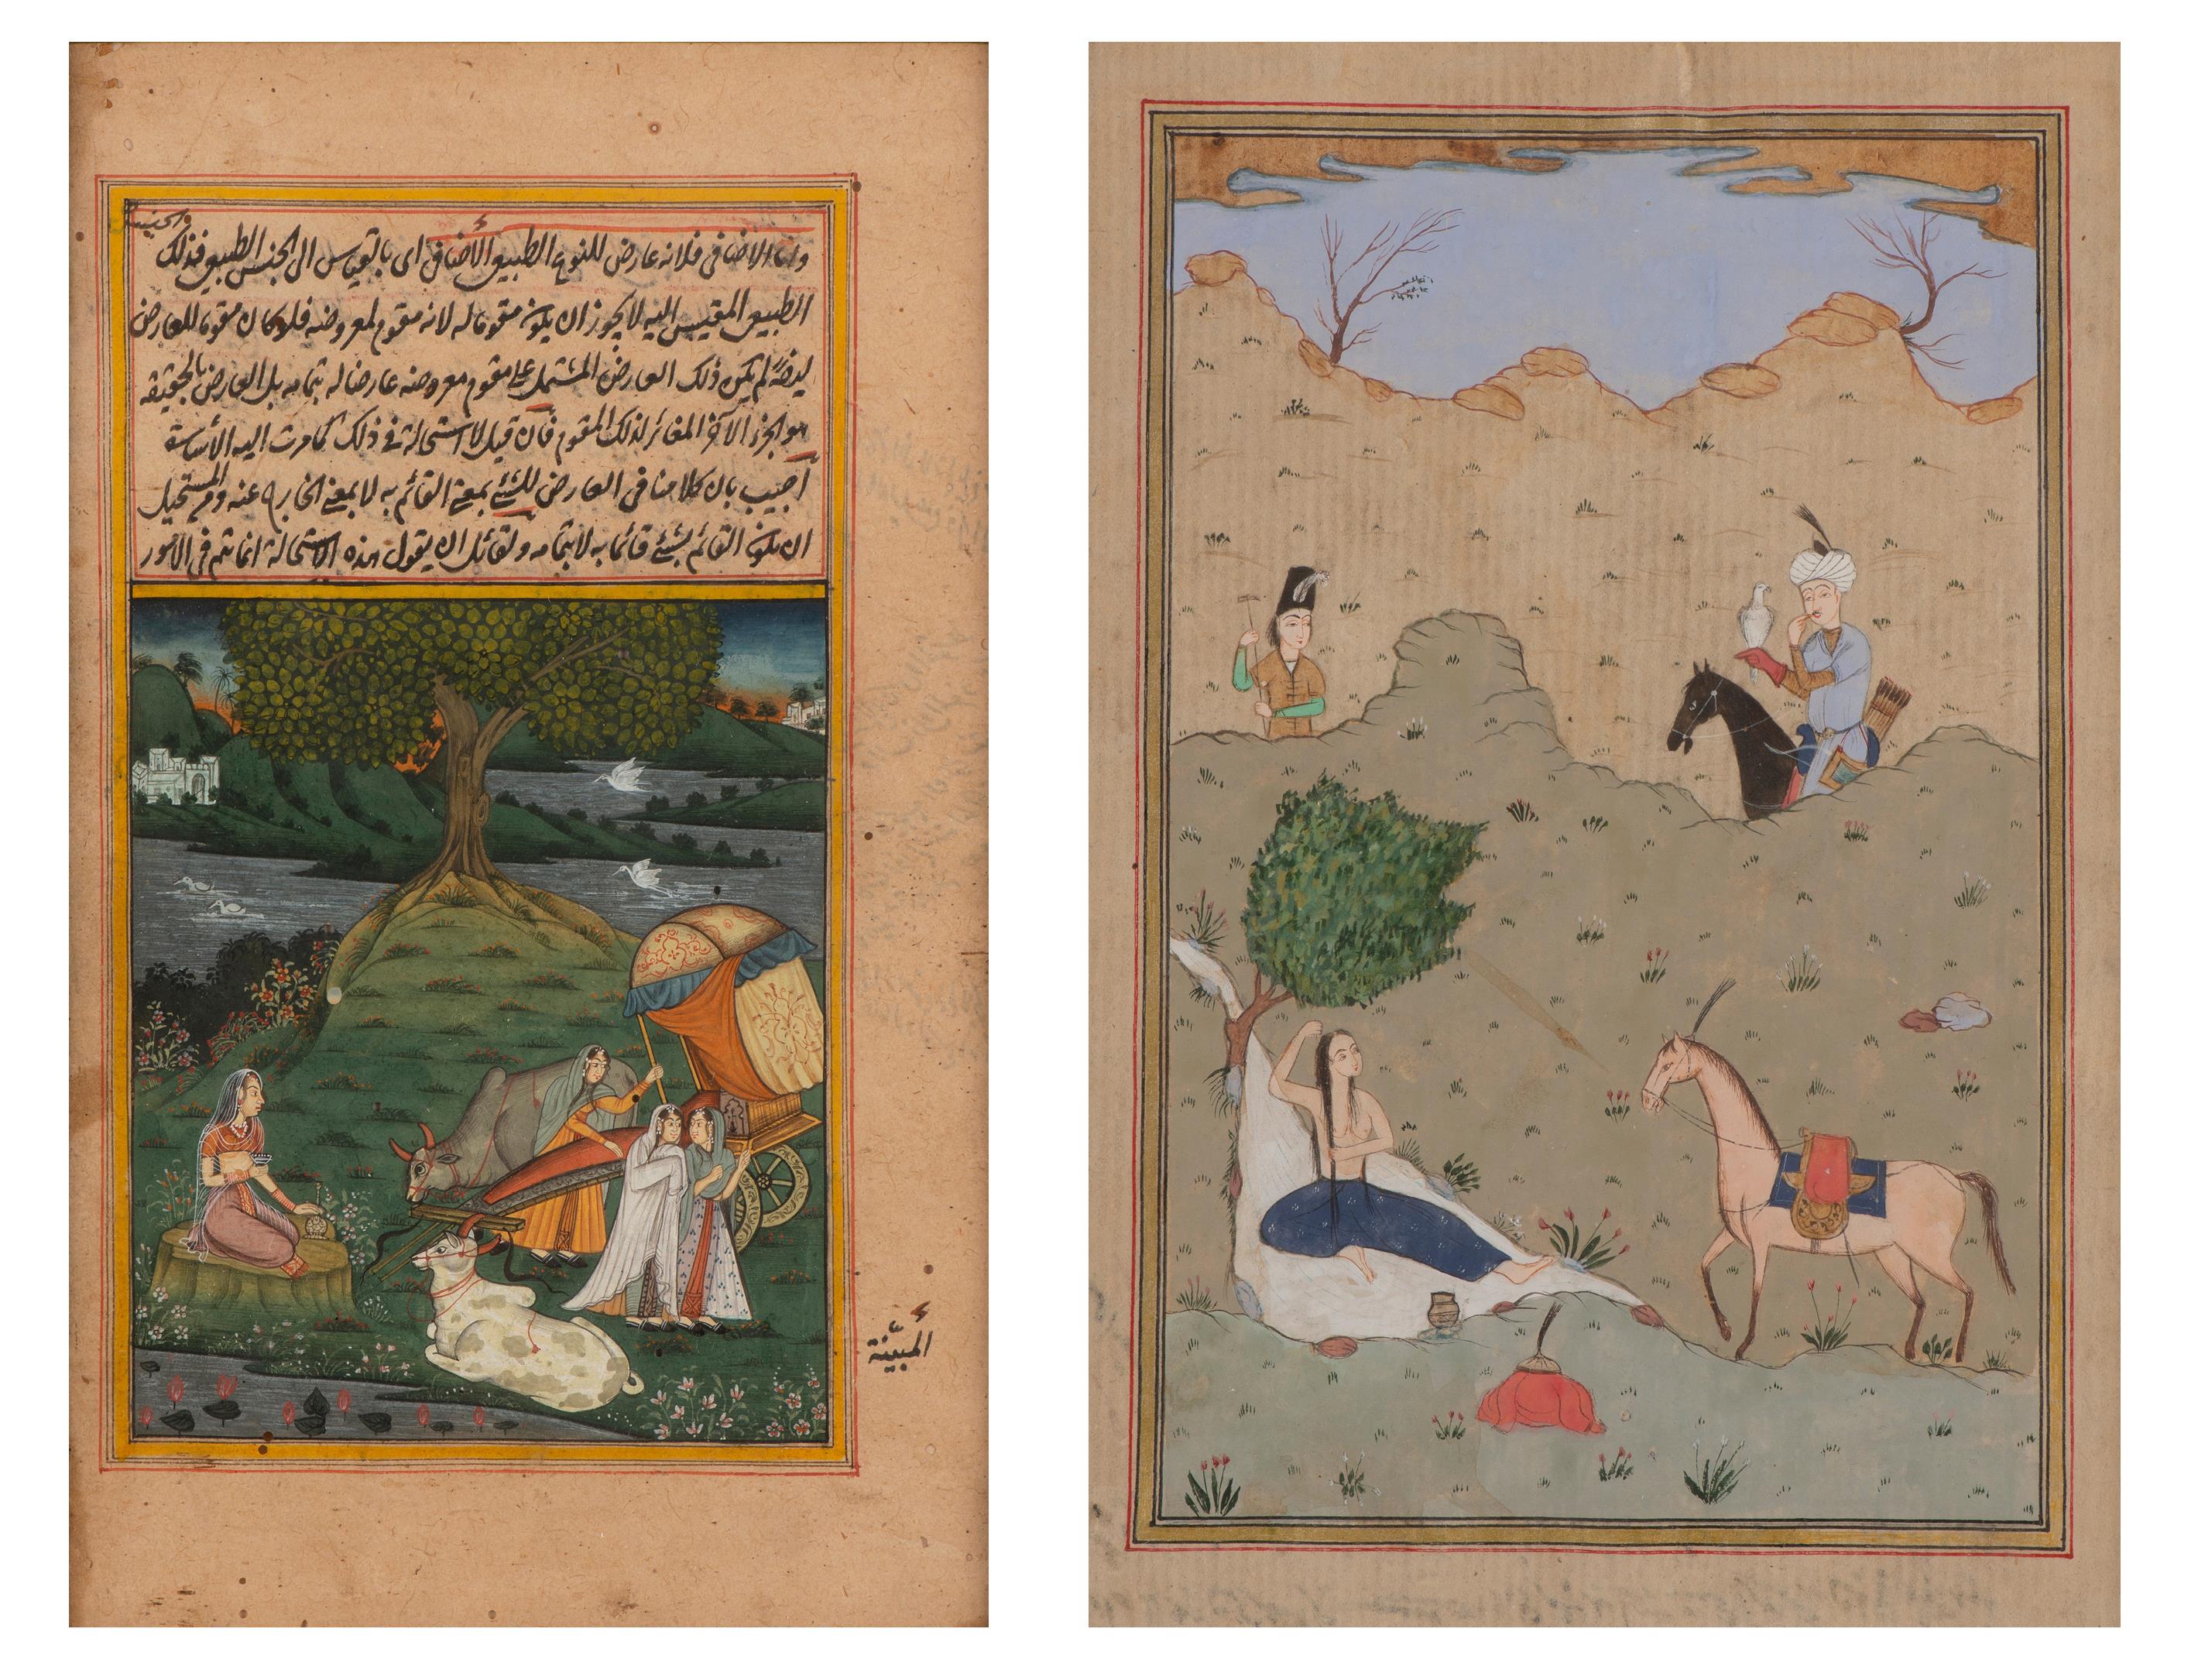 واما الاضافى فلانه عارض للنوع الطبيعى الأضافى اى بالقياس الى الجنس الطبيعى فذلك
الطبيعى المقيس اليه لا يجوز ان يكون مقوما له لانه مقوم لمعروضه فلو كان مقوما للعارض
ايضا لم يكن ذلك العارض المشتمل على مقوم معروضه عارضا له بتمامه بل العارض بالحقيقة
هو الجزء الآخر المغائر لذلك المقوم فان قيل لا استحالة فى ذلك كما مرت اليه الأشارة
اجيب بان كلامنا فى العارض للشئ بمعنى القائم به لا بمعنى الخارج عنه ومن المستحيل
ان يكون القائم بشئ قائما به لا بتمامه ولقائل ان يقول هذه الاستحالة انما تتم فى الامور
المبينة